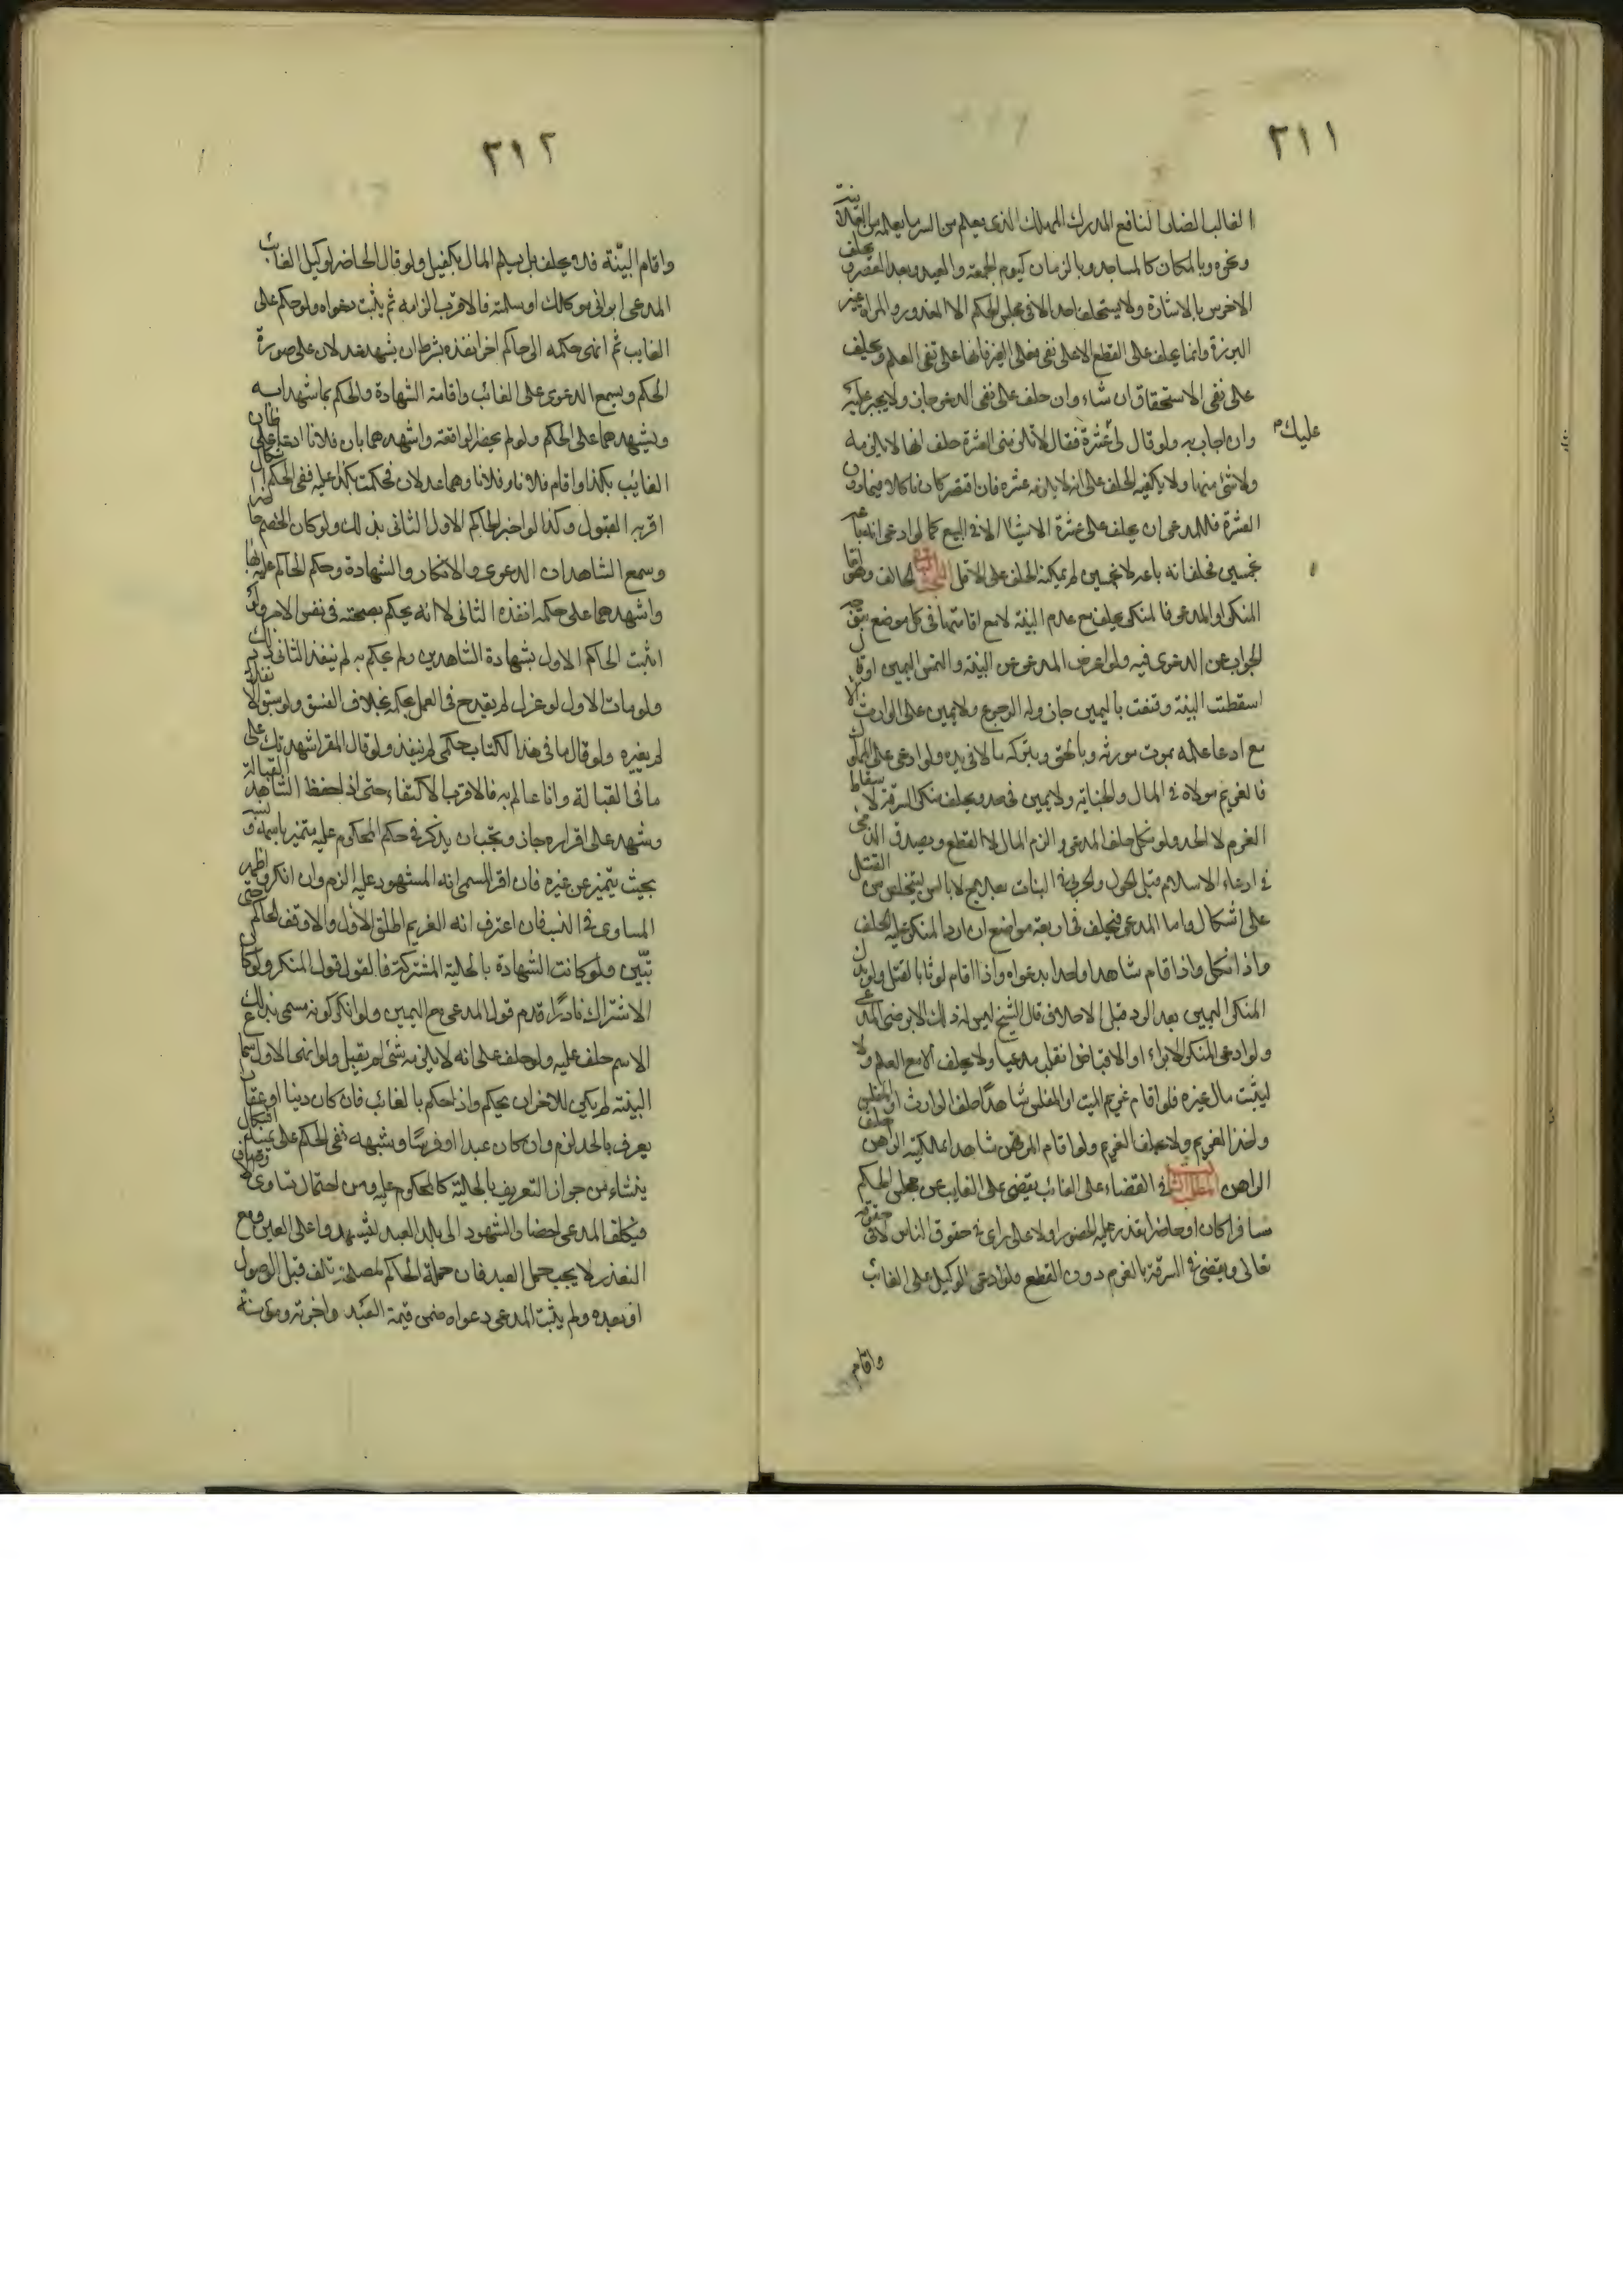 ٢١١
الغالب الضار النافع المدرك المهلك الذى يعلم من السر ما يعلمه من العلانية
ونحوه وبالمكان كالمساجد وبالزمان كيوم الجمعة والعيد وبعد العصر ويحلف
الاخرس بالاشارة ولا يستحلف احد الا فى مجلس الحكم الا المعذور والمراة غير
البرزة وانما يحلف على القطع الا على نفى فعل الغير فانها على نفى العلم ويحلف
على نفى الاستحقاق ان شاء وان حلف على نفى الدعوى جاز ولا يجبر عليه
وان اجاب به ولو قال لى عشرة فقال لا تلزمنى العشرة حلف انها لا تلزمه
عليك
ولا شئ منها ولا يكفيه الحلف على انه لا يلزمه عشرة فان اقتصر كان ناكلا فيما دون
العشرة فللمدعى ان يحلف على عشرة الا شيئا الا فى البيع كما لو ادعى انه باعه
بخمسين فحلف انه باعه لا بخمسين لم يمكنه الحلف على الاقل الحالف وهو اما
المنكر او المدعى فالمنكر يحلف مع عدم البينة لا مع اقامتها فى كل موضع يتوجه
الجواب عن الدعوى فيه ولو اعرض المدعى عن البينة والتمس اليمين او قال
اسقطت البينة وقنعت باليمين جاز وله الرجوع ولا يمين على الوارث الا
مع ادعا علمه بموت مورثه وبالحق وبتركه مالا فى يده ولو ادعى على المملوك
فالغريم مولاه فى المال والجناية ولا يمين فى حد ويحلف منكر السرقة لاسقاط
الغرم لا الحد ولو نكل حلف المدعى والزم المال لا القطع ويصدق الذمى
فى ادعاء الاسلام قبل الحول والحربى فى انبات بعلاج لا بالسن ليتخلص من القتل
على اشكال واما المدعى فيحلف فى اربعة مواضع ان رد المنكر عليه الحلف
واذا نكل واذا قام شاهدا واحدا بدعواه واذا اقام لوثا بالقتل ولو بذل
المنكر اليمين بعد الرد قبل الاحلاف قال الشيخ ليس له ذلك الا برضى المدعى
ولو ادعى المنكر الابراء او الاقباض انقلب مدعيا ولا يحلف الا مع العلم ولا
ليثبت مال غيره فلو اقام غريم الميت او المفلس شاهدًا حلف الوارث او المفلس
واخذ الغريم ولا يحلف الغريم ولو اقام المرتهن شاهدا بملكية الراهن حلف
الراهن المطلب الثالث فى القضاء على الغائب يقضى على الغايب عن مجلس الحكم
مسافرا كان او حاضرا تعذر عليه الحضور او لا على راى فى حقوق الناس لا فى حقوقه
تعالى ويقضى فى السرقة بالغرم دون القطع ولو ادعى الوكيل على الغائب
واقام
٢١٢
واقام البيّنة فلا يحلف بل يسلم المال بكفيل ولو قال الحاضر لوكيل الغائب
المدعى ابرانى موكلك او سلمته فالاقرب الزامه ثم يثبت دعواه ولو حكم على
الغايب ثم انهى حكمه الى حاكم اخر انفذه بشرط ان يشهد عدلان على صورة
الحكم ويسمع الدعوى على الغائب واقامة الشهادة والحكم بما شهدا به
ويشهدهما على الحكم ولو لم يحضر الواقعة واشهدهما بان فلانا ادعا على فلان
الغايب بكذا واقام فلانا وفلانا وهما عدلان فحكمت بكذا عليه ففى الحكم اشكال
اقربه القبول وكذا لو اخبر الحاكم الاول الثانى بذلك ولو كان الخصم حاضرا
وسمع الشاهدان الدعوى والانكار والشهادة وحكم الحاكم عليه بها
واشهدهما على حكمه انفذه الثانى لا انه يحكم بصحته فى نفس الامر ولو
اثبت الحاكم الاول بشهادة الشاهدين ولم يحكم به لم ينفذ الثانى ذلك
ولو مات الاول او عزل لم يقدح فى العمل بحكمه بخلاف الفسق ولو سبق انفاذه
لم يغيره ولو قال ما فى هذا الكتاب حكمى لم ينفذ ولو قال المقر اشهدتك على
ما فى القبالة وانا عالم به فالاقرب الاكتفاء حتى اذا حفظ الشاهد القبالة
وشهد على اقراره جاز ويجب ان يذكر فى حكم المحكوم عليه متميز باسمه ونسبه
بحيث يتميز عن غيره فان اقر المسمى انه المشهود عليه الزم وان انكر واظهر
المساوى فى النسب فان اعترف انه الغريم اطلق الاول والا وقف الحاكم حتى
تبيّن ولو كانت الشهادة بالحلية المشتركة فالقول قول المنكر ولو كان
الاشتراك نادرًا قدم قول المدعى مع اليمين ولو انكر كونه مسمى بذلك
الاسم حلف عليه ولو حلف على انه لا يلزمه شئ لم يقبل ولو انهى الاول سماع
البينة لم يكن للاخر ان يحكم واذا حكم بالغائب فان كان دينا او عقارا
يعرف بالحد لزم وان كان عبدا او فرسًا وشبهه ففى الحكم على عينه اشكال
ينشاء من جواز التعريف بالحلية كالمحكوم عليه ومن احتمال تساوى الاوصاف
فيكلف المدعى احضار الشهود الى بلد العبد ليشهدوا على العين ومع
التعذر لا يجب حمل العبد فان حمله الحاكم لمصلحة تلف قبل الوصول
او بعده ولم يثبت المدعى دعواه ضمن قيمة العبد واجرته ومؤنة